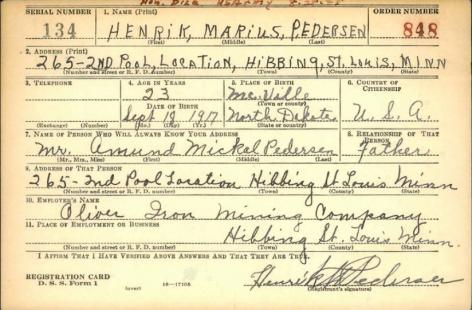 SERIAL NUMBER 1. NAME (Print) ORDER NUMBER
134 HENRIK, MARIUS, PEDERSEN 848
(First) (Middle) (Last)
2. ADDRESS (Print)
265-2ND POOL, LOCATION, HIBBING, ST. LOUIS, MINN
(Number and street or R. F. D. number) (Town) (County) (State)
3. TELEPHONE 4. AGE IN YEARS 5. PLACE OF BIRTH 6. COUNTRY OF CITIZENSHIP
23 McVille
DATE OF BIRTH (Town or county)
Sept 19 1917 North Dakota U. S. A.
(Exchange) (Number) (Mo.) (Day) (Yr.) (State or country)
7. NAME OF PERSON WHO WILL ALWAYS KNOW YOUR ADDRESS 8. RELATIONSHIP OF THAT PERSON
Mr. Amund Mickal Pedersen Father
(Mr., Mrs., Miss) (First) (Middle) (Last)
9. ADDRESS OF THAT PERSON
265-2nd Pool Location Hibbing St Louis Minn
(Number and street or R. F. D. number) (Town) (County) (State)
10. EMPLOYER'S NAME
Oliver Iron Mining Company
11. PLACE OF EMPLOYMENT OR BUSINESS
Hibbing St. Louis Minn.
(Number and street or R. F. D. number) (Town) (County) (State)
I AFFIRM THAT I HAVE VERIFIED ABOVE ANSWERS AND THAT THEY ARE TRUE.
REGISTRATION CARD Henrik M Pedersen
D. S. S. Form 1 (over) 16-17105 (Registrant's signature)